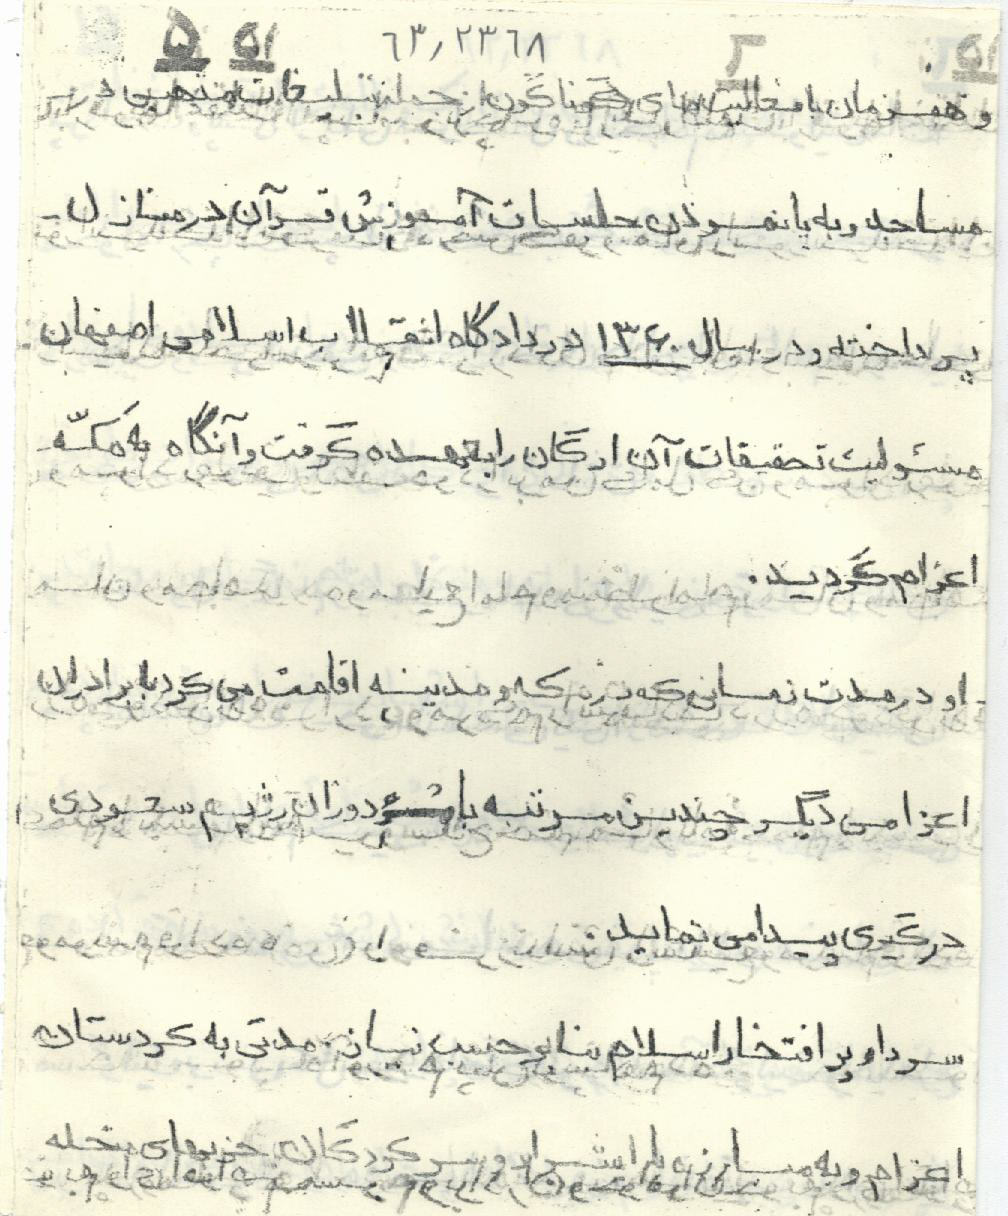 ۵ ۵۱ ۶۳٫۲۳۶۸ ۲ ۵۱
و همزمان با فعالیت های گوناگون از جمله تبلیغات مذهبی در
مساجد و به پا نمودن جلسات آموزش قرآن در منازل
پرداخته و در سال ۱۳۶۰ در دادگاه انقلاب اسلامی اصفهان
مسئولیت تحقیقات آن ارگان را به عهده گرفت و آنگاه به مکّه
اعزام گردید.
او در مدت زمانی که در مکه و مدینه اقامت می کرد با برادران
اعزامی دیگر چندین مرتبه با مزدوران رژیم سعودی
درگیری پیدا می نماید.
سردار پر افتخار اسلام بنا بر حسب نیاز، مدتی به کردستان
اعزام و به مبارزه با اشرار و سرکردگان حزبهای منحله